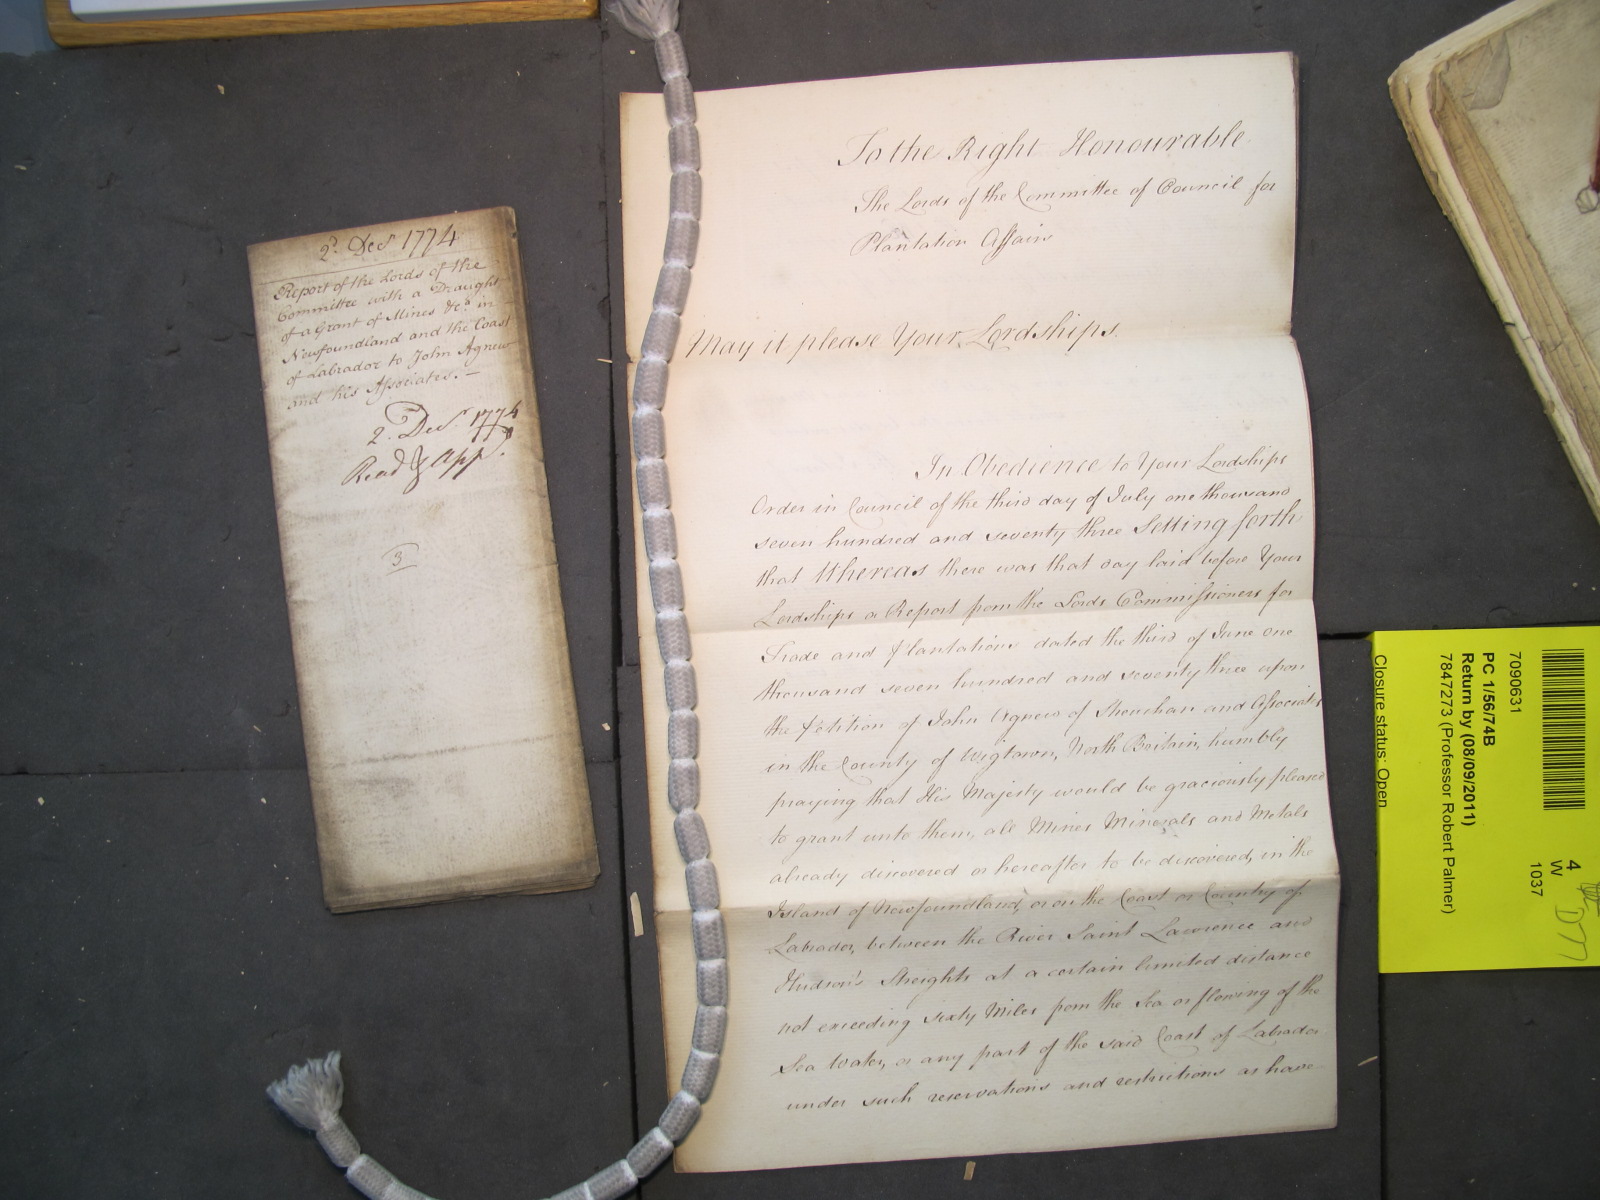 2d. Decr 1774
Report of the Lords of the
Committee with a Draught
of a Grant of Mines &ca. in
Newfoundland and the Coast
of Labrador to John Agnew
and his Associates. —
2d. Decr. 1774
Read & App.
3
To the Right Honourable
The Lords of the Committee of Council for
Plantation Affairs
May it please Your Lordships.
In Obedience to Your Lordships
Order in Council of the third day of July one thousand
seven hundred and seventy three Setting forth
that Whereas there was that day laid before Your
Lordships a Report from the Lords Commissioners for
Trade and Plantations dated the third of June one
thousand seven hundred and seventy three upon
the Petition of John Agnew of Sheuchan and Associates
in the County of Wigtown, North Britain, humbly
praying that His Majesty would be graciously pleased
to grant unto them, all Mines Minerals and Metals
already discovered or hereafter to be discovered, in the
Island of Newfoundland, or on the Coast or Country of
Labrador, between the River Saint Lawrence and
Hudson's Streights at a certain limited distance
not exceeding sixty Miles from the Sea or flowing of the
Sea Water, or any part of the said Coast of Labrador
under such reservations and restrictions as have
7090631
PC 1/56/74B
Return by (08/09/2011)
7847273 (Professor Robert Palmer)
Closure status: Open
4
W
1037